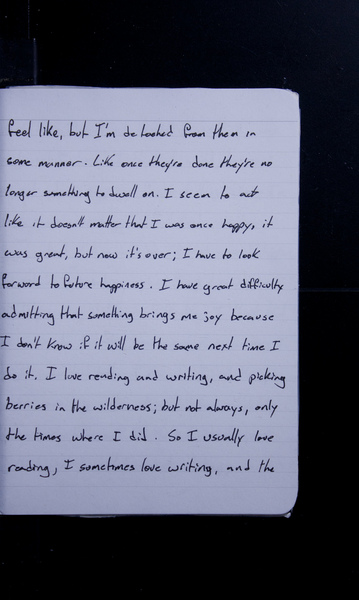 feel like, but I'm detached from them in
some manner. Like once they're done they're no
longer something to dwell on. I seem to act
like it doesn't matter that I was once happy; it
was great, but now it's over; I have to look
forward to future happiness. I have great difficulty
admitting that something brings me joy because
I don't know if it will be the same next time I
do it. I love reading and writing, and picking
berries in the wilderness; but not always, only
the times where I did. So I usually love
reading, I sometimes love writing, and the